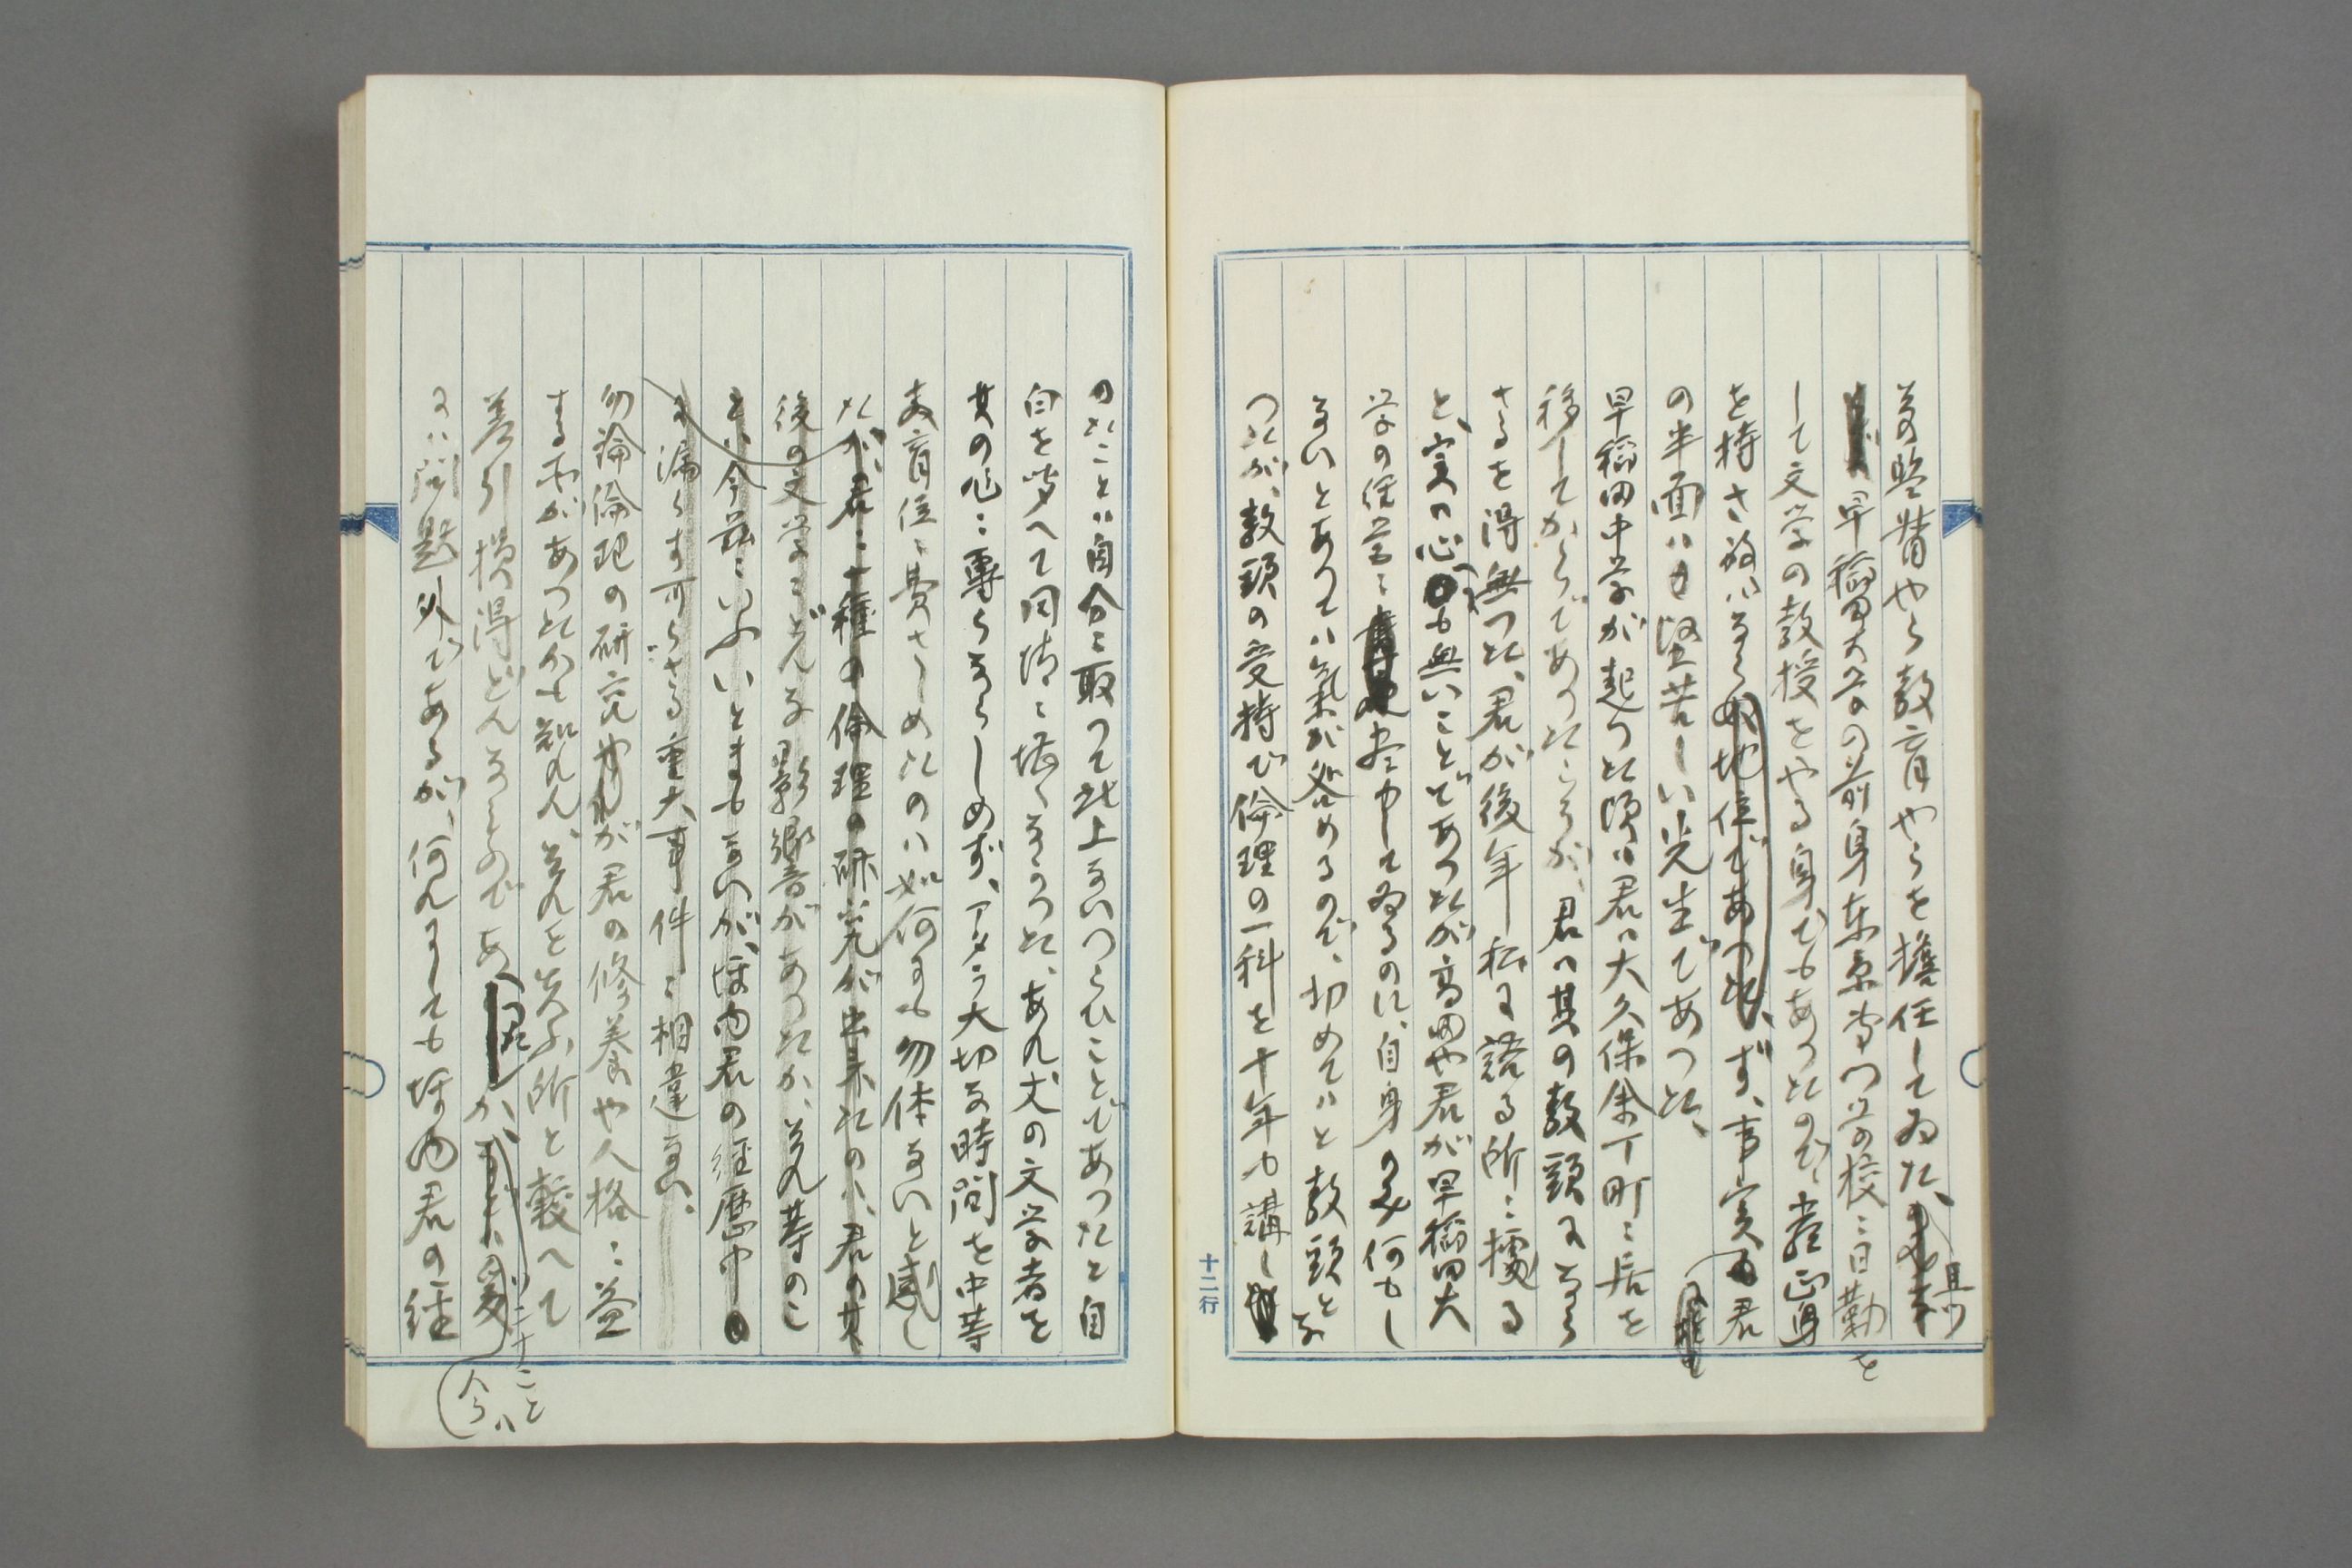 の監督やら教育やらを擔任してゐた、且つ
早稲田大学の前身東京専門学校に日勤を
して文学の教授をやる身でもあつたので、
を持さねばならぬ地位であつた、ず、事実君
の半面は堅苦しい先生であつた、
早稲田中学が起つた頃は君は大久保余丁町に居を
移してからであつたらうが、君は其の教頭になら
ざるを得無つた、君が後年私に語る所に據る
と、実の心も無いことであつたが高田や君が早稲田大
学の経営に尽力して居るのに、自身のみ何もし
ないとあつては氣が咎めるので、切めてはと教頭とな
つたが、教頭の受持で倫理の一科を十年も講し
十二行
のたことは自分に取つて此上ないつらいことであつたと自
白を聞いて同情に堪へなかつた、あれ丈の文学者を
其の心に専らならしめず、アタラ大切な時間を中等
教育位に費さしめたのは如何にも勿体ないと感し
たが、君に一種の倫理の研究が出来たのは、君の其
後の文学にどんな影響があつたか、それ等のこ
とは今茲にいふいとまもないが、坪内君の経歴中
に漏らす可らざる重大事件に相違ない、
勿論倫理の研究が君の修養や人格に益
する所があつたかも知れん、それを失ふ所と較べて
差引損得どんなものであつたか、
は二十こと
今は
には問題外であるが、何れにしても坪内君の経